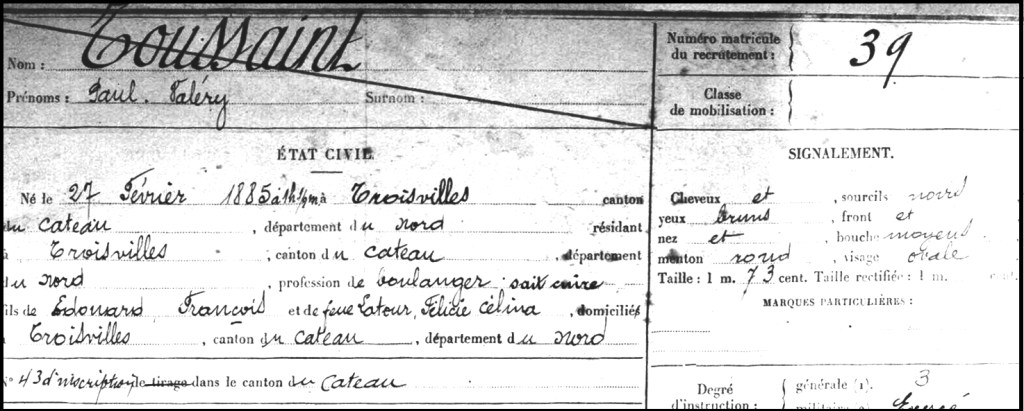 Nom : Toussaint
Prénoms : Paul. Valéry Surnom :
Numéro matricule
du recrutement : 39
Classe
de mobilisation :
ÉTAT CIVIL
Né le 27 Février 1885 à 1h ½ m à Troisvilles canton
du Cateau, département du Nord résidant
à Troisvilles, canton du Cateau, département
du Nord, profession de boulanger ; sait cuire
fils de Edouard François et de feue Latour, Félicie Célina, domiciliés
à Troisvilles, canton du Cateau, département du Nord
N° 43 d'inscription le tirage dans le canton du Cateau
SIGNALEMENT.
Cheveux et, sourcils noirs
yeux bruns, front et
nez et, bouche moyens
menton rond, visage ovale
Taille : 1 m. 73 cent. Taille rectifiée : 1 m. cent.
MARQUES PARTICULIÈRES :
Degré
d'instruction :
générale (1). 3
militaire (2). Exercé